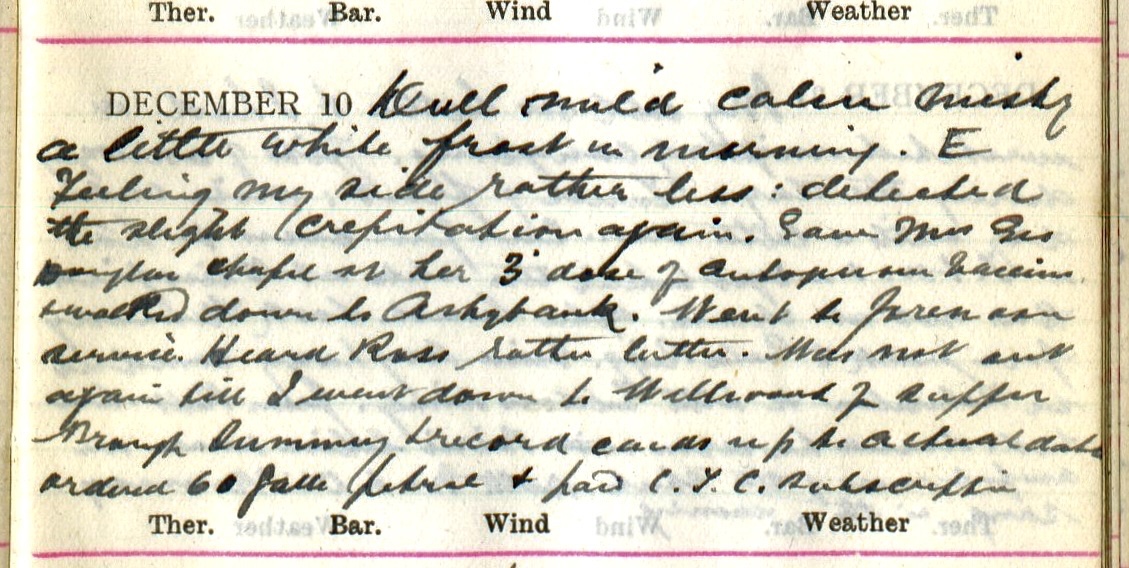 Ther. Bar. Wind Weather
DECEMBER 10 Dull mild calm misty
a little white frost in morning. E
Feeling my side rather less: detected
the slight crepitation again. Gave Mrs Geo
at her 3 dose of autogenous Vaccine.
walked down to Ashybank. Went to forenoon
service. Heard Ross rather better. Was not out
again till I went down to Wellwood for supper
Brough record cards up to actual date
ordered 60 galls petrol & paid C.T.C. subscription
Ther. Bar. Wind Weather